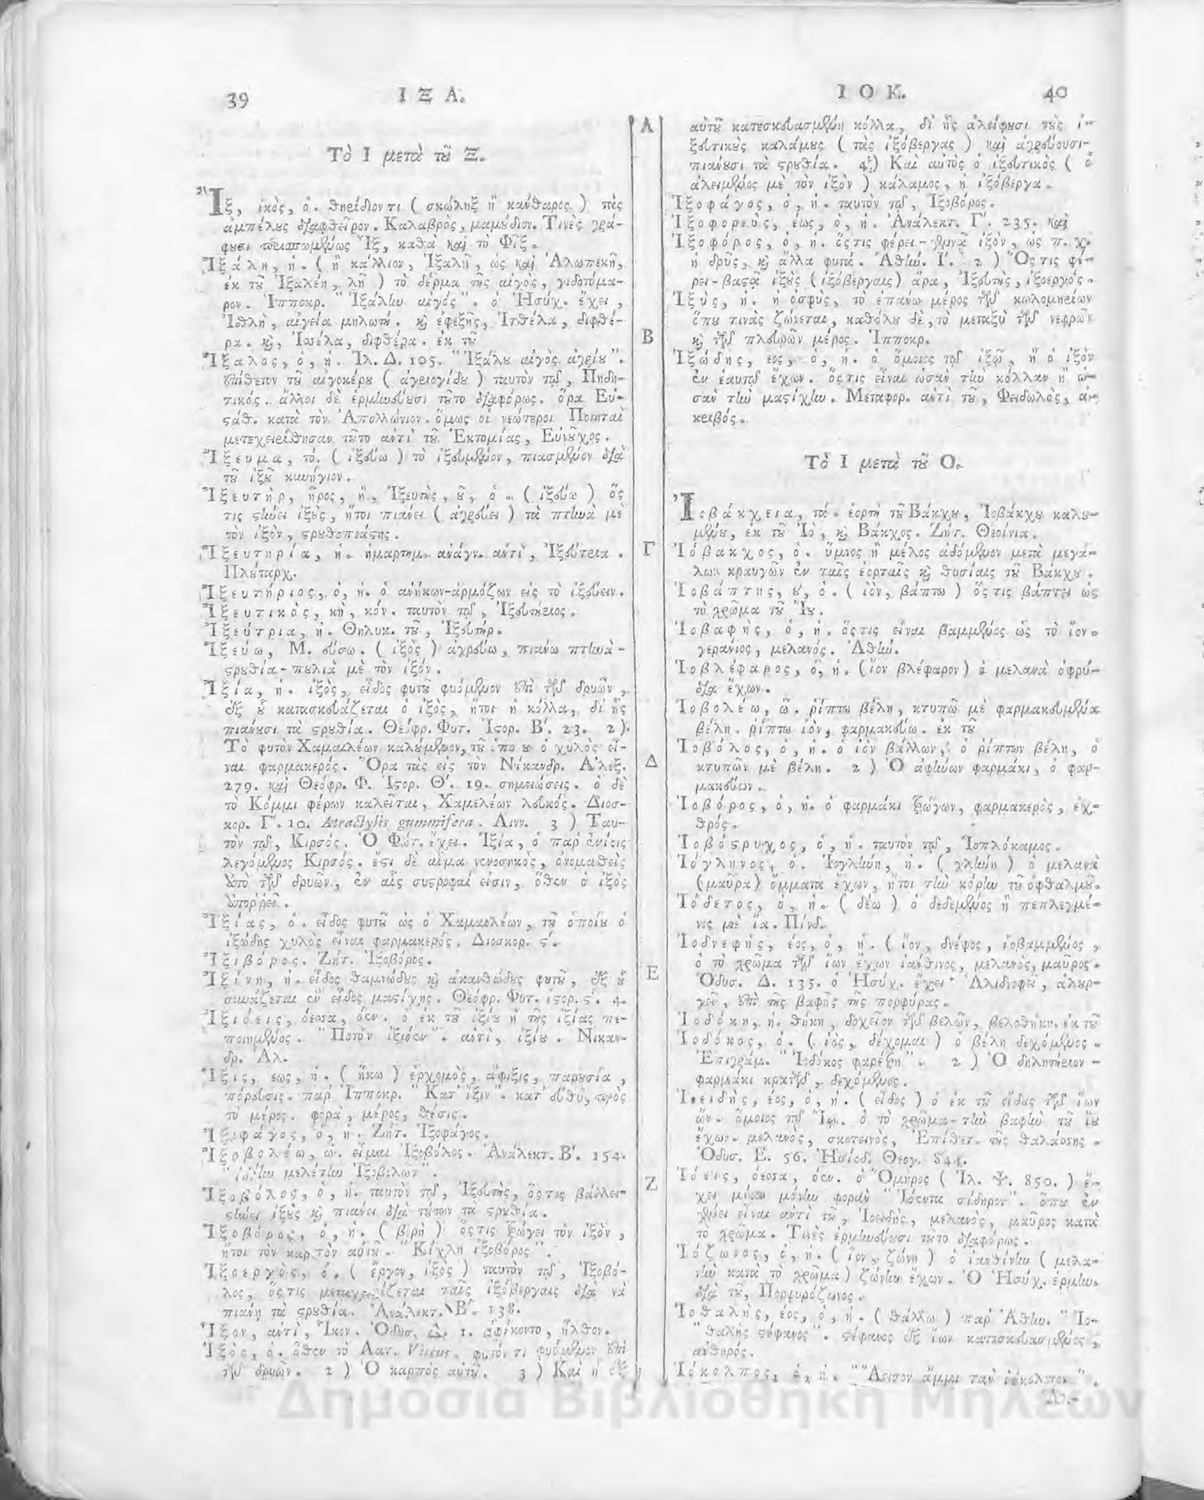 39
Ι Ξ Α.
Τὸ Ι μετὰ τοῦ Ξ.
Ἲξ, ἰκὸς, ὁ. θηρίδιόν τι ( σκώληξ ἢ κανθαρος ) τὰς
ἀμπέλους διαφθεῖρον. Καλαβρὸς, μαμούδιον. Τινὲς γρά-
φουσι Ἲξ, καθὰ καὶ τὸ Φῒξ.
Ἰξάλη, ἡ. ( ἢ κάλλιον, Ἰξαλῆ, ὡς καὶ Ἀλωπεκῆ,
ἐκ τοῦ Ἰξαλέη, λῆ ) τὸ δέρμα τῆς αἰγὸς, γιδοτόμα-
ρον. Ἱπποκρ. " Ἰξάλην αἰγὸς ". ὁ Ἡσύχ. ἔχει,
Ἰσθλὴ, αἰγεία μηλωτή. καὶ ἐφεξῆς, Ἰτθέλα, διφθέ-
ρα. καὶ, διφθέρα. ἐκ τοῦ
Ἴξαλος, ὁ, ἡ. Ἰλ. Δ. 105. " Ἰξάλου αἰγὸς ἀγρίου ".
ἐπίθετον τοῦ αἰγοκέρου ( ἀγριογίδου ) ταυτὸν τῷ, Πηδη-
τικός. ἄλλοι δὲ ἑρμηνεύουσι τοῦτο διαφόρως. ὅρα Εὐ-
στάθ. κατὰ τὸν Ἀπολλώνιον. ὅμως οἱ νεώτεροι Ποιηταὶ
μετεχειρίσθησαν τοῦτο αντὶ τοῦ Ἐκτομίας, Εὐνοῦχος.
Ἴξευμα, τό. ( ἰξεύω ) τὸ ἰξευμένον, πιασμένον διὰ
τοῦ ἰξοῦ κυνήγιον.
Ἰξευτὴρ, ῆρος, ἢ, Ἰξευτὴς, οῦ, ὁ. ( ἰξεύω ) ὅς
τις στήνει ἰξοὺς, ἤτοι πιάνει ( ἀγρεύει ) τὰ πτηνὰ μὲ
τὸν ἰξὸν, στρουθοπιάστης.
Ἰξευτηρία, ἡ. ἡμαρτημ. ἀνάγν. αντὶ, Ἰξεύτρια.
Πλούταρχ.
Ἰξευτήριος, ὁ, ἡ. ὁ ανήκων-ἁρμόζων εἰς τὸ ἰξεύειν.
Ἰξευτικὸς, κὴ, κόν. ταυτὸν τῷ, Ἰξευτήριος.
Ἰξεύτρια, ἡ. Θηλυκ. τοῦ, Ἰξευτήρ.
Ἰξεύω, Μ. εύσω. ( ἰξὸς ) ἀγρεύω, πιάνω πτηνὰ-
στρουθία-πουλιὰ μὲ τὸν ἰξόν.
Ἰξία, ἡ. ἰξὸς, εἶδος φυτοῦ φυόμενον ἐπὶ τῶν δρυῶν,
ἐξ οὗ κατασκευάζεται ὁ ἰξὸς, ἤτοι ἡ κόλλα, δι' ἧς
πιάνουσι τὰ στρουθία. Θεόφρ. Φυτ. Ἱστορ. Β'. 23. 2 )
Τὸ φυτὸν Χαμαιλέων καλούμενον, τοῦ ὁποίου ὁ χυλὸς εἶ-
ναι φαρμακερός. Ὅρα τὰς εἰς τὸν Νίκανδρ. Ἀλεξ.
279. καὶ Θεόφρ. Φ. Ἱστορ. Θ'. 19. σημειώσεις. ὁ δὲ
τὸ Κόμμι φέρων καλεῖται, Χαμελέων λευκός. Διοσ-
κορ. Γ'. 10. Atractylis gummifera. Λινν. 3 ) Ταυ-
τὸν τῷ, Κιρσός. Ὁ Φώτ. ἔχει. Ἰξία, ὁ παρ' ἐνίοις
λεγόμενος Κιρσός. ἔστι δὲ αἷμα νενοσηκὸς, ὀνομασθεὶς
ἀπὸ τῶν δρυῶν, ἐν αἷς συστροφαί εἰσιν, ὅθεν ὁ ἰξὸς
ἀπορρεῖ.
Ἰξίας, ὁ. εἶδος φυτοῦ ὡς ὁ Χαμαιλέων, τοῦ ὁποίου ὁ
ἰξώδης χυλὸς εἶναι φαρμακερός. Διοσκορ. ς'.
Ἰξιβόρος. Ζήτ. Ἰξοβόρος.
Ἰξίνη, ἡ. εἶδος θαμνώδους καὶ ἀκανθώδους φυτοῦ, ἐξ οὗ
συνάζεται ἓν εἶδος μαστίχης. Θεόφρ. Φυτ. ἱστορ. ς'. 4.
Ἰξιόεις, όεσσα, όεν. ὁ ἐκ τοῦ ἰξίου ἢ τῆς ἰξίας πε-
ποιημένος. " Ποτὸν ἰξιόεν ". αντὶ, ἰξίου. Νικαν-
δρ. Ἀλ.
Ἴξις, εως, ἡ. ( ἥκω ) ἐρχομὸς, ἄφιξις, παρουσία,
πόρευσις. παρ' Ἱπποκρ. " Κατ' ἴξιν ". κατ' εὐθὺ, πρὸς
τὸ μέρος. φορὰ, μέρος, θέσις.
Ἰξιφάγος, ὁ, ἡ. Ζήτ. Ἰξοφάγος.
Ἰξοβολέω, ῶ. εἶμαι Ἰξοβόλος. Ἀνάλεκτ. Β'. 154.
μελέτην Ἰξοβολῶν ".
Ἰξοβόλος, ὁ, ἡ. ταυτὸν τῷ, Ἰξευτὴς, ὅστις βάλλει-
στήνει ἰξοὺς καὶ πιάνει διὰ τούτων τὰ στρουθία.
Ἰξοβόρος, ὁ, ἡ. ( βορὴ ) ὅστις τρώγει τὸν ἰξὸν,
ἤτοι τὸν καρπὸν αὐτοῦ. " Κίχλη ἰξοβόρος ".
Ἰξοεργὸς, ὁ. ( ἔργον, ἰξὸς ) ταυτὸν τῷ, Ἰξοβό-
λος, ὅστις μεταχειρίζεται ταῖς ἰξόβεργαις διὰ νὰ
πιάνῃ τὰ στρουθία. Ἀνάλεκτ. Β'. 138.
Ἷξον, αντὶ, Ἷκον. Ὀδυσ. 1. ἀφίκοντο, ἦλθον.
Ἰξὸς, ὁ. ὅθεν τὸ Λατ. Viscus. φυτόν τι φυόμενον ἐπὶ
τῶν δρυῶν. 2 ) Ὁ καρπὸς αὐτοῦ. 3 ) Καὶ ἡ ἐξ
Α
Β
Γ
Δ
Ε
Ζ
Ι Ο Κ.
40
αὐτοῦ κατεσκευασμένη κόλλα, δι' ἧς ἀλείφουσι τοὺς ἰ-
ξευτικοὺς καλάμους ( τὰς ἰξόβεργας ) καὶ ἀγρεύουσι-
πιάνουσι τὰ στρουθία. 4 ) Καὶ αὐτὸς ὁ ἰξευτικὸς ( ὁ
ἀλειμμένος μὲ τὸν ἰξὸν ) κάλαμος, ἡ ἰξόβεργα.
Ἰξοφάγος, ὁ, ἡ. ταυτὸν τῷ, Ἰξοβόρος.
Ἰξοφορεὺς, έως, ὁ, ἡ. Ἀνάλεκτ. Γ'. 235. καὶ
Ἰξοφόρος, ὁ, ἡ. ὅστις φέρει-γεννᾷ ἰξὸν, ὡς π. χ.
ἡ δρῦς, καὶ ἄλλα φυτά. Ἀθήν. Γ'. 2 ) Ὅστις φέ-
ρει-βαστᾷ ἰξοὺς ( ἰξόβεργαις ) ἄρα, Ἰξευτὴς, ἰξοεργός.
Ἰξὺς, ἡ. ἡ ὀσφὺς, τὸ ἐπάνω μέρος τῶν κωλομηρίων
ὅπου τινὰς ζώνεται, καθόλου δὲ, τὸ μεταξὺ τῶν νεφρῶν
καὶ τῶν πλευρῶν μέρος. Ἱπποκρ.
Ἰξώδης, εος, ὁ, ἡ. ὁ ὅμοιος τῷ ἰξῷ, ἢ ὁ ἰξὸν
ἐν ἑαυτῷ ἔχων. ὅστις εἶναι ὡσὰν τὴν κόλλαν ἢ ὡ-
σὰν τὴν μαστίχην. Μεταφορ. αντὶ τοῦ, Φειδωλὸς, ἀ-
κριβός.
Τὸ Ι μετὰ τοῦ Ο.
Ἰοβάκχεια, τά. ἑορτὴ τοῦ Βάκχου, Ἰοβάκχου καλου-
μένου, ἐκ τοῦ Ἰὸ, καὶ Βάκχος. Ζήτ. Θεοίνια.
Ἰόβακχος, ὁ. ὕμνος ἢ μέλος ἀδόμενον μετὰ μεγά-
λων κραυγῶν ἐν ταῖς ἑορταῖς καὶ θυσίαις τοῦ Βάκχου.
Ἰοβάπτης, ου, ὁ. ( ἰὸν, βάπτω ) ὅστις βάπτει ὡς
τὸ χρῶμα τοῦ Ἴου.
Ἰοβαφὴς, ὁ, ἡ. ὅστις εἶναι βαμμένος ὡς τὸ ἴον.
γεράνιος, μελανός. Ἀθήν.
Ἰοβλέφαρος, ὁ, ἡ. ( ἴον βλέφαρον ) ὁ μελανὰ ὀφρύ-
δια ἔχων.
Ἰοβολέω, ῶ. ῥίπτω βέλη, κτυπῶ μὲ φαρμακευμένα
βέλη. ῥίπτω ἰὸν, φαρμακεύω. ἐκ τοῦ
Ἰοβόλος, ὁ, ἡ. ὁ ἰὸν βάλλων, ὁ ῥίπτων βέλη, ὁ
κτυπῶν μὲ βέλη. 2 ) Ὁ ἀφίνων φαρμάκι, ὁ φαρ-
μακεύων.
Ἰοβόρος, ὁ, ἡ. ὁ φαρμάκι τρώγων, φαρμακερὸς, ἐχ-
θρός.
Ἰοβόστρυχος, ὁ, ἡ. ταυτὸν τῷ, Ἰοπλόκαμος.
Ἰόγληνος, ὁ. Ἰογλήνη, ἡ. ( γλήνη ) ὁ μελανὰ
( μαῦρα ) ὄμματα ἔχων, ἤτοι τὴν κόρην τοῦ ὀφθαλμοῦ.
Ἰόδετος, ὁ, ἡ. ( δέω ) ὁ δεδεμένος ἢ πεπλεγμέ-
νος μὲ ἴα. Πίνδ.
Ἰοδνεφὴς, έος, ὁ, ἡ. ( ἴον, δνέφος, ἰοβαμμένος,
ὁ τὸ χρῶμα τῶν ἴων ἔχων ἰάνθινος, μελανὸς, μαῦρος.
Ὀδυσ. Δ. 135. ὁ Ἡσύχ. ἔχει· ἁλουρ-
γεῖ, ἀπὸ τῆς βαφῆς τῆς πορφύρας.
Ἰοδόκη, ἡ. θήκη, δοχεῖον τῶν βελῶν, βελοθήκη. ἐκ τοῦ
Ἰοδόκος, ὁ. ( ἰὸς, δέχομαι ) ὁ βέλη δεχόμενος.
Ἐπιγράμ. " Ἰοδόκος φαρέτρη ". 2 ) Ὁ δηλητήριον-
φαρμάκι κρατῶν, δεχόμενος.
Ἰοειδὴς, έος, ὁ, ἡ. ( εἶδος ) ὁ ἐκ τοῦ εἴδους τῶν ἴων
ὤν. ὅμοιος τῷ Ἴῳ. ὁ τὸ χρῶμα-τὴν βαφὴν τοῦ ἴου
ἔχων. μελανὸς, σκοτεινὸς, Ἐπίθετ. τῆς θαλάσσης.
Ὀδυσ. Ε. 56. Ἡσίοδ. Θεογ. 844.
Ἰόεις, όεσσα, όεν. ὁ Ὅμηρος ( Ἰλ. Ψ. 850. ) ἔ-
χει μίαν μόνην φορὰν " Ἰόεντα σίδηρον ". ὅπου ἐν
εἶναι αντὶ τοῦ, Ἰοειδὴς, μελανὸς, μαῦρος κατὰ
τὸ χρῶμα. Τινὲς ἑρμηνεύουσι τοῦτο διαφόρως.
Ἰόζωνος, ὁ, ἡ. ( ἴον, ζώνη ) ὁ ἰανθίνην ( μελα-
νὴν κατὰ τὸ χρῶμα ) ζώνην ἔχων. Ὁ Ἡσύχ. ἑρμην.
διὰ τοῦ, Πορφυρόζωνος.
Ἰοθαλὴς, έος, ὁ, ἡ. ( θάλλω ) παρ' Ἀθήν. " Ἰο-
" θαλὴς στέφανος ". στέφανος ἐξ ἴων κατεσκευασμένος,
ἀνθηρός.
Ἰόκολπος, ὁ, ἡ. " ἄμμι τὰν ἰόκολπον ".
Δημόσια Βιβλιοθήκη Μηλεών